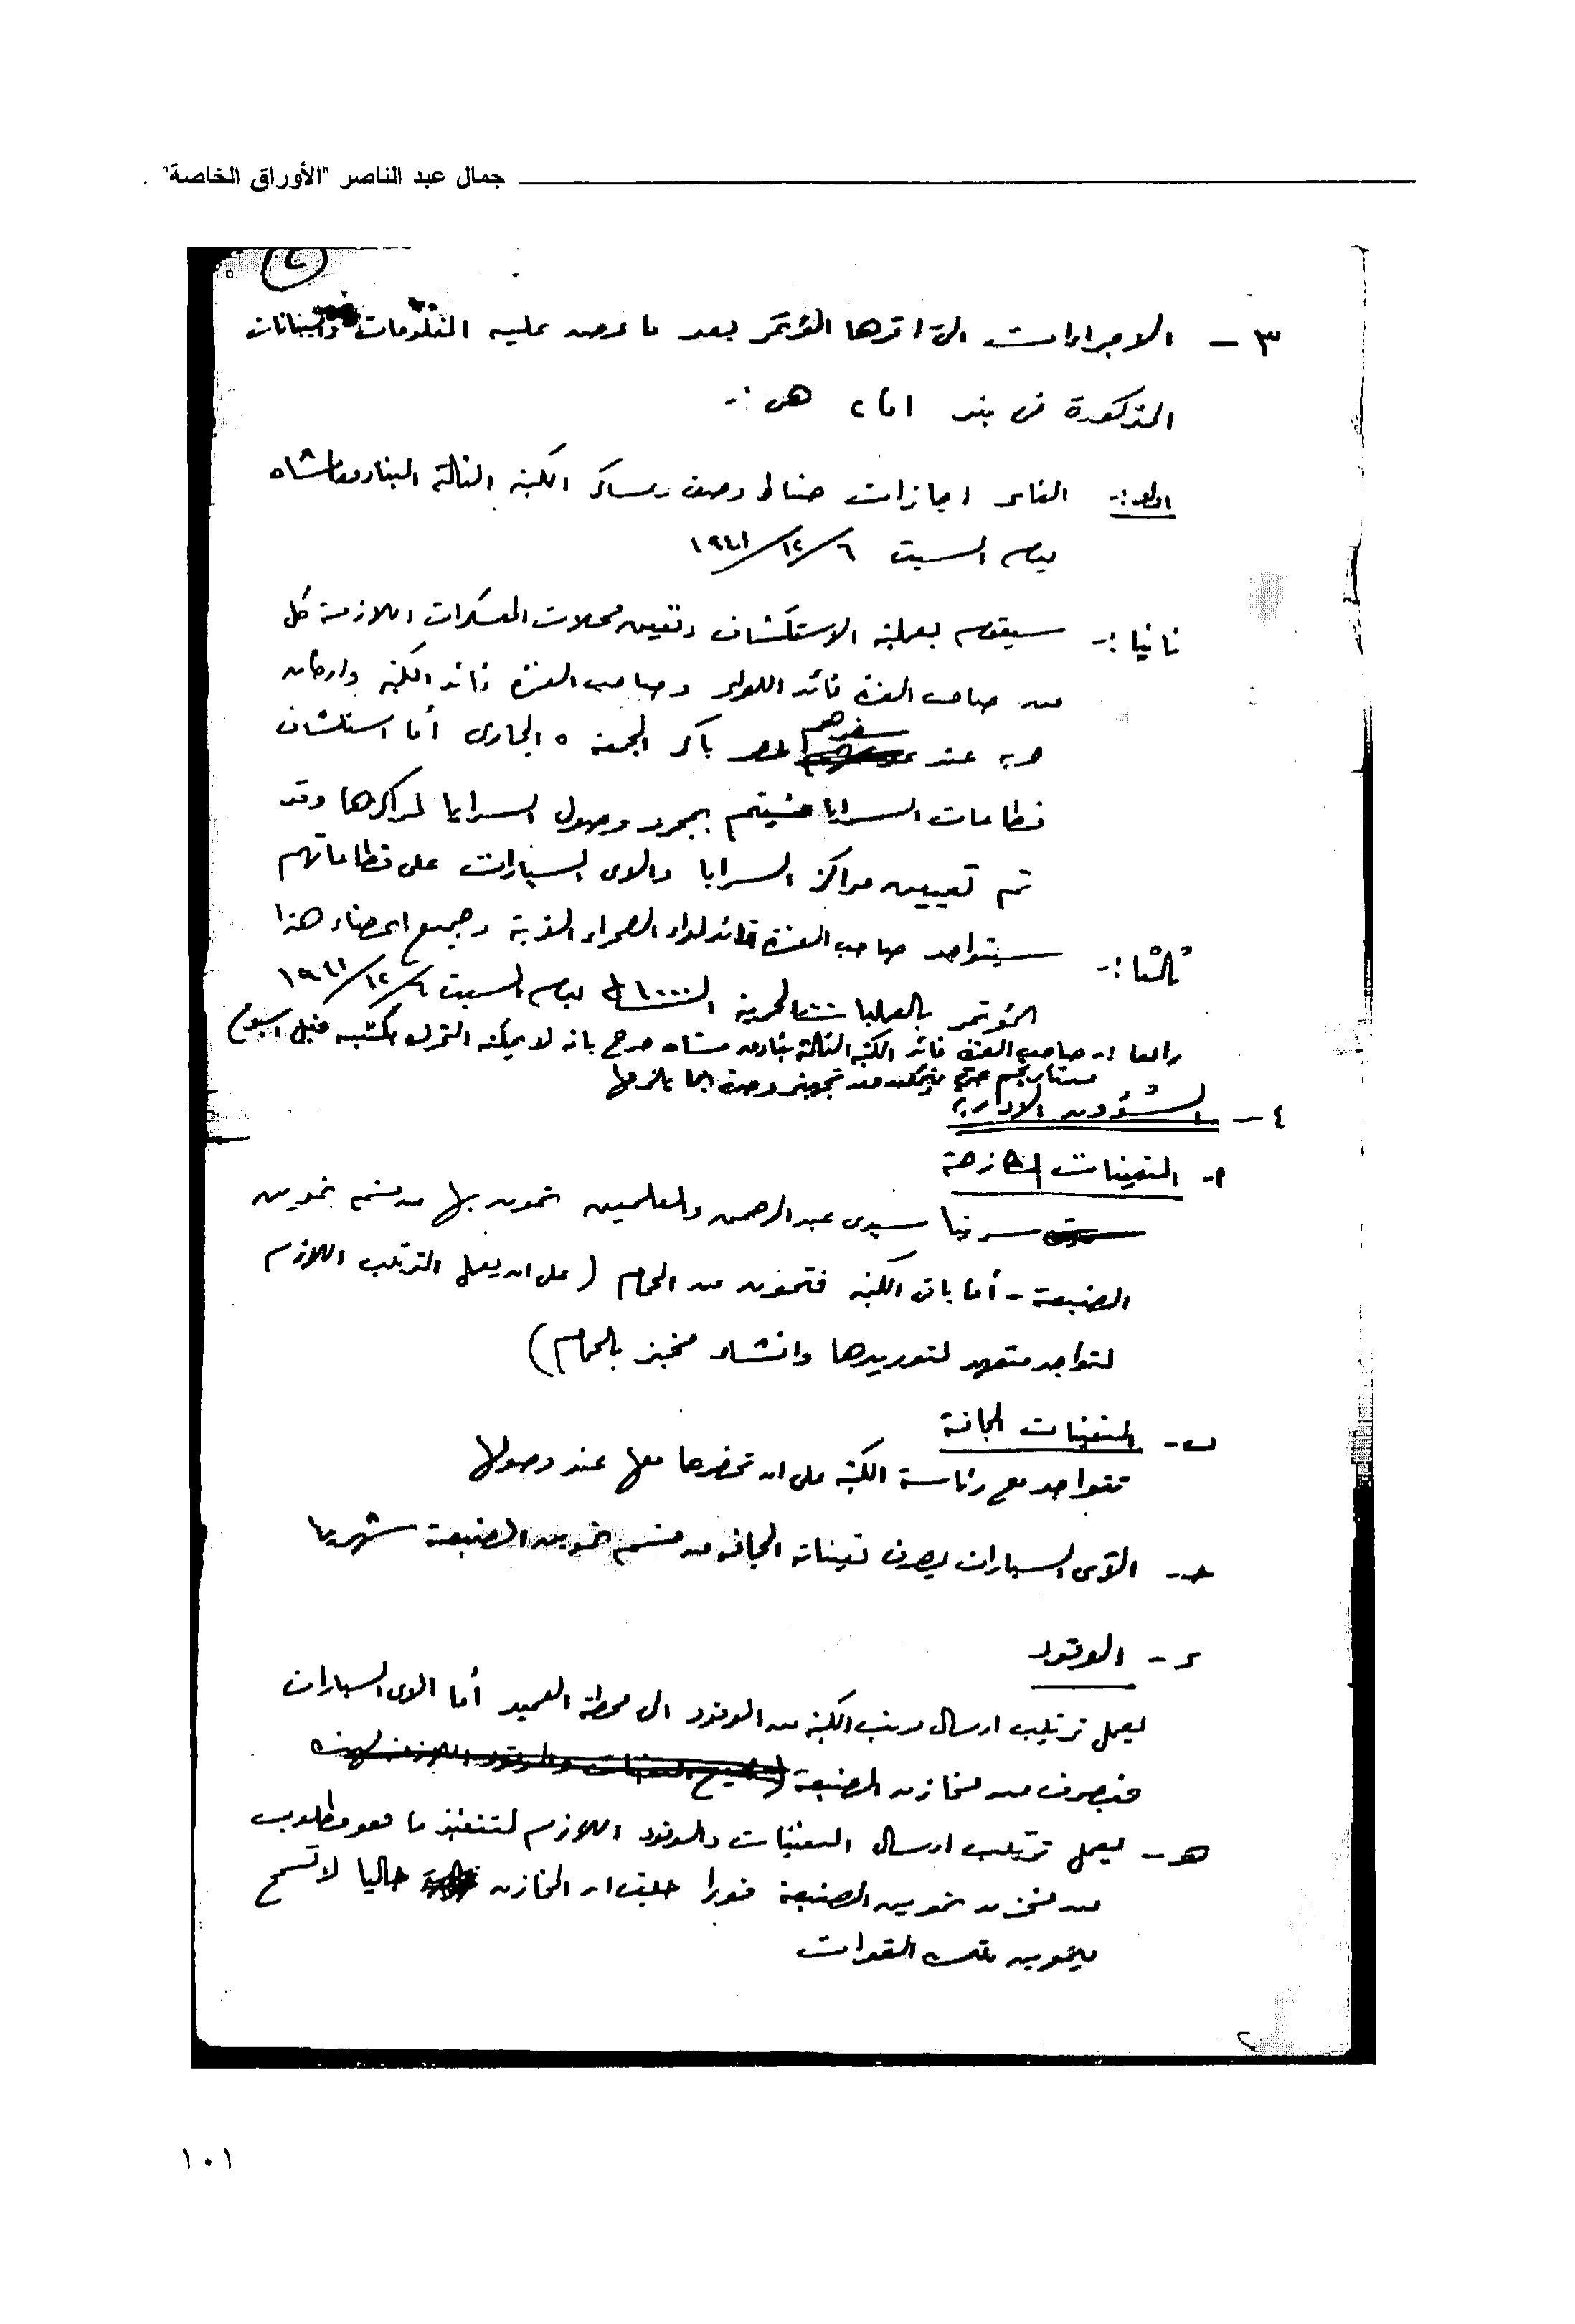 جمال عبد الناصر "الأوراق الخاصة"
٢
٣ - الاجراءات التى اقرها المؤتمر بعد ما عرض عليه المعلومات والبيانات
المذكورة فى بند ١ و ٢ هى :-
اولا :- الغاء اجازات ضباط وصف وعساكر الكتيبة الثالثة البنادق المشاه
يوم السبت ٦/١٢/١٩٤١
ثانيا :- سيقوم بعملية الاستكشاف وتعيين محلات المعسكرات اللازمة كل
من صاحب العزة قائد اللواء وصاحب العزة قائد الكتيبة واركان
حربه عند سفرهم لمصر باكر الجمعة ٥ الجارى أما استكشاف
قطاعات السرايا فسيتم بمجرد وصول السرايا لمراكزها وقد
تم تعيين مراكز السرايا والاى السيارات على قطاعاتهم
ثالثا :- سيتواجد صاحب العزة قائد لواء الصحراء الغربية وجميع اعضاء هذا
المؤتمر بالعمليات الحربية الساعة ١٠٠٠ يوم السبت ٦/١٢/١٩٤١
رابعا :- صاحب العزة قائد الكتيبة الثالثة بنادق مشاه صرح بانه لا يمكنه التحرك بكتيبته قبل اسبوع
من تاريخه حتى يتمكن من تجهيز وحدته بما يلزمها
٤ - الشؤون الادارية
ا- التعيينات الطازجة
سريتا سيدى عبد الرحمن والعلمين تمون بها من قسم تموين
الضبعة - أما باقى الكتيبة فتمون من الحمام (على ان يعمل الترتيب اللازم
لتواجد متعهد لتوريدها وانشاء مخبز بالحمام)
ب- التعيينات الجافة
تتواجد مع رئاسة الكتيبة على ان تحضرها معها عند وصولها
ج- الاى السيارات يصرف تعيناته الجافة من قسم تموين الضبعة شهريا
د - الوقود
يعمل ترتيب ارسال مرتب الكتيبة من الوقود الى محطة العميد أما الاى السيارات
فيصرف من مخازن الضبعة
هـ - يعمل ترتيب ارسال التعينات والوقود اللازم لتنفيذ ما هو مطلوب
من مخزن تموين الضبعة فورا حيث ان المخازن حاليا لا تسمح
بتموين تلك القوات
٢
١٠١